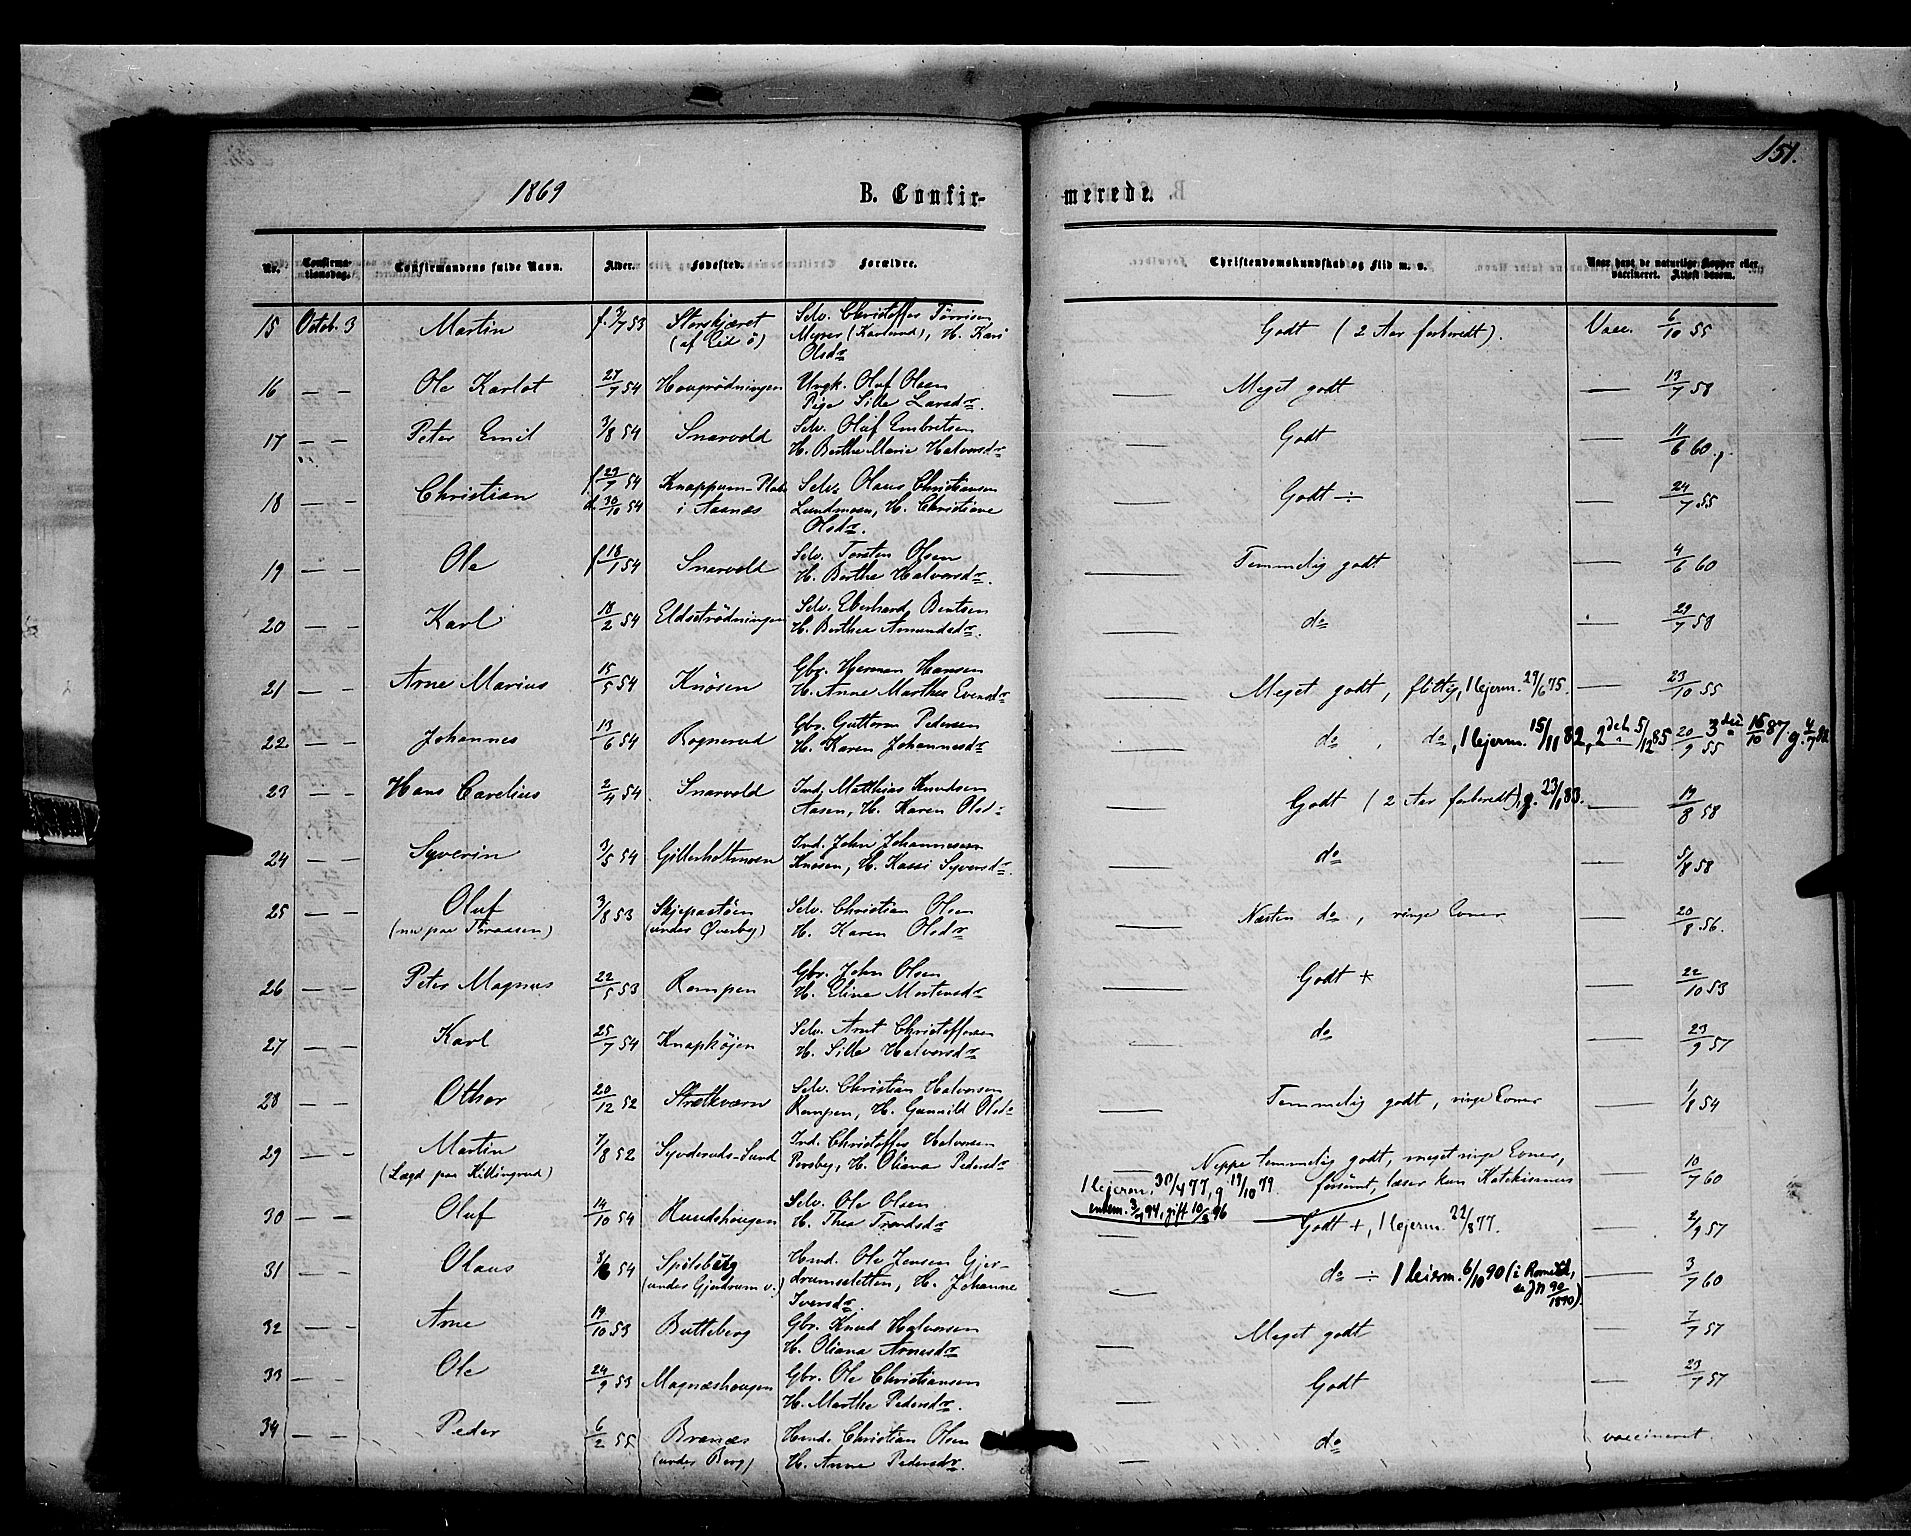 151.
1869 B. Confirmerede.
Nr. Confirmationsdag. Confirmandens fulde Navn. Alder. Fødested. Forældre. Christendomskundskab og Flid m. v. Naar havt de naturlige Kopper eller vaccineret. Attest derom.
15 Octob. 3 Martin f. 3/7 53 Storskjæret Selv. Christoffer Tørrisen Godt (2 Aar forberedt). Vacc. 6/10 55
(af Eid s) Myrer (Karlsrud), H. Kari
Olsdr
16 — — Ole Karlot 27/7 54 Haugrødningen Ungk. Oluf Olsen — Meget godt — 13/7 58
Pige Sille Larsdr.
17 — — Peter Emil 3/8 54 Snarvold Selv. Oluf Embretsen — Godt — 11/6 60
H. Berthe Marie Halvorsdr
18 — — Christian f 29/7 54 Knappum-Plads Selv. Olaus Christiansen — Godt ÷ — 24/7 55
d. 30/10 54 i Aasnæs Lundmoen, H. Christiane
Olsdr.
19 — — Ole f 18/1 54 Snarvold Selv. Torsten Olsen — Temmelig godt — 4/6 60
H. Berthe Halvorsdr.
20 — — Karl 18/2 54 Eldsetrødningen Selv. Eberhard Bentsen — do — 29/7 58
H. Berthea Amundsdr.
21 — — Arne Marius 15/5 54 Knösen Gbr. Herman Hansen — Meget godt, flittig, 1 lejerm. 29/6 75. — 23/10 55
H. Anne Marthea Evensdr
22 — — Johannes 13/6 54 Rognerud Gbr. Guttorm Pedersen — do, do, 1 lejerm. 15/11 82, 2det 5/12 85 20/9 55 3die 16/10 87, g. 4/7 88
H. Karen Johannesdr
23 — — Hans Carelius 2/4 54 Snarvold Ind. Matthias Knudsen — Godt (2 Aar forberedt), g. 23/1 83. — 19/8 58
Aasen, H. Karen Olsdr
24 — — Syverin 3/5 54 Gillerholtmoen Ind. John Johannesen — do — 5/8 58
Knösen, H. Kassi Syversdr.
25 — — Oluf 3/8 53 Skjepastöen Selv. Christian Olsen — Næsten do, ringe Evner — 20/8 56.
(nu paa Toraasen) (under Överby) H. Karen Olsdr
26 — — Peter Magnus 22/5 53 Rampen Gbr. John Olsen — Godt + — 22/10 53
H. Eline Mortensdr
27 — — Karl 25/7 54 Knaphöjen Selv. Arnt Christoffersen — do — 23/9 57
H. Sille Halvorsdr
28 — — Othar 20/12 52 Strætkværn Selv. Christian Halvorsen — Temmelig godt, ringe Evner — 1/8 54
Rampen, H. Gunnild Olsdr
29 — — Martin 7/8 52 Syveruds-Sund Ind. Christoffer Halvorsen — Neppe temmelig godt, meget ringe Evner, — 10/7 60
(Lægd paa Killingrud) Persby, H. Oliana Pedersdr forsömt, læser kun Katekismus
1 lejerm. 30/4 77, g 19/10 79.
enkem. 3/7 94, gift 10/8 96
30 — — Oluf 14/10 54 Hundshougen Selv. Ole Olsen — Godt +, 1 lejerm. 22/8 77. — 2/9 57
H. Thea Trondsdr
31 — — Olaus 3/6 54 Spitsberg Hmd. Ole Jensen Gjer- — do ÷ 1 leierm. 6/10 90 (i Romedal, — 3/7 60
(under Gjerdrum v.) drumsletten, H. Johanne se Jn 90/1890).
Iversdr.
32 — — Arne 19/10 53 Butteberg Gbr. Knud Halvorsen — Meget godt — 7/7 57
H. Oliana Arnesdr
33 — — Ole 24/9 53 Magnæshougen Gbr. Ole Christiansen — Godt — 23/7 57
H. Marthe Pedersdr.
34 — — Peder 6/2 55 Brænæs Hmd. Christian Olsen — do vaccineret.
(under Berg) H. Anne Pedersdr.